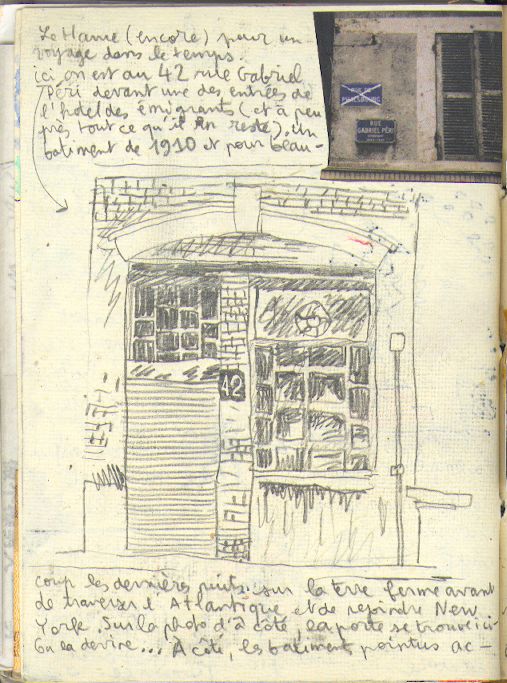 Le Havre (encore) pour un
voyage dans le temps.
ici on est au 42 rue Gabriel
Péri devant une des entrées de
l'hotel des émigrants (et à peu
près tout ce qu'il en reste). un
batiment de 1910 et pour beau-
RUE DE
PHALSBOURG
RUE
GABRIEL PÉRI
42
coup les dernières nuits sur la terre ferme avant
de traverser l'Atlantique et de rejoindre New
York. Sur la photo d'à côté, la porte se trouve ici
On la devine... À côté, les batiments pointus ac-